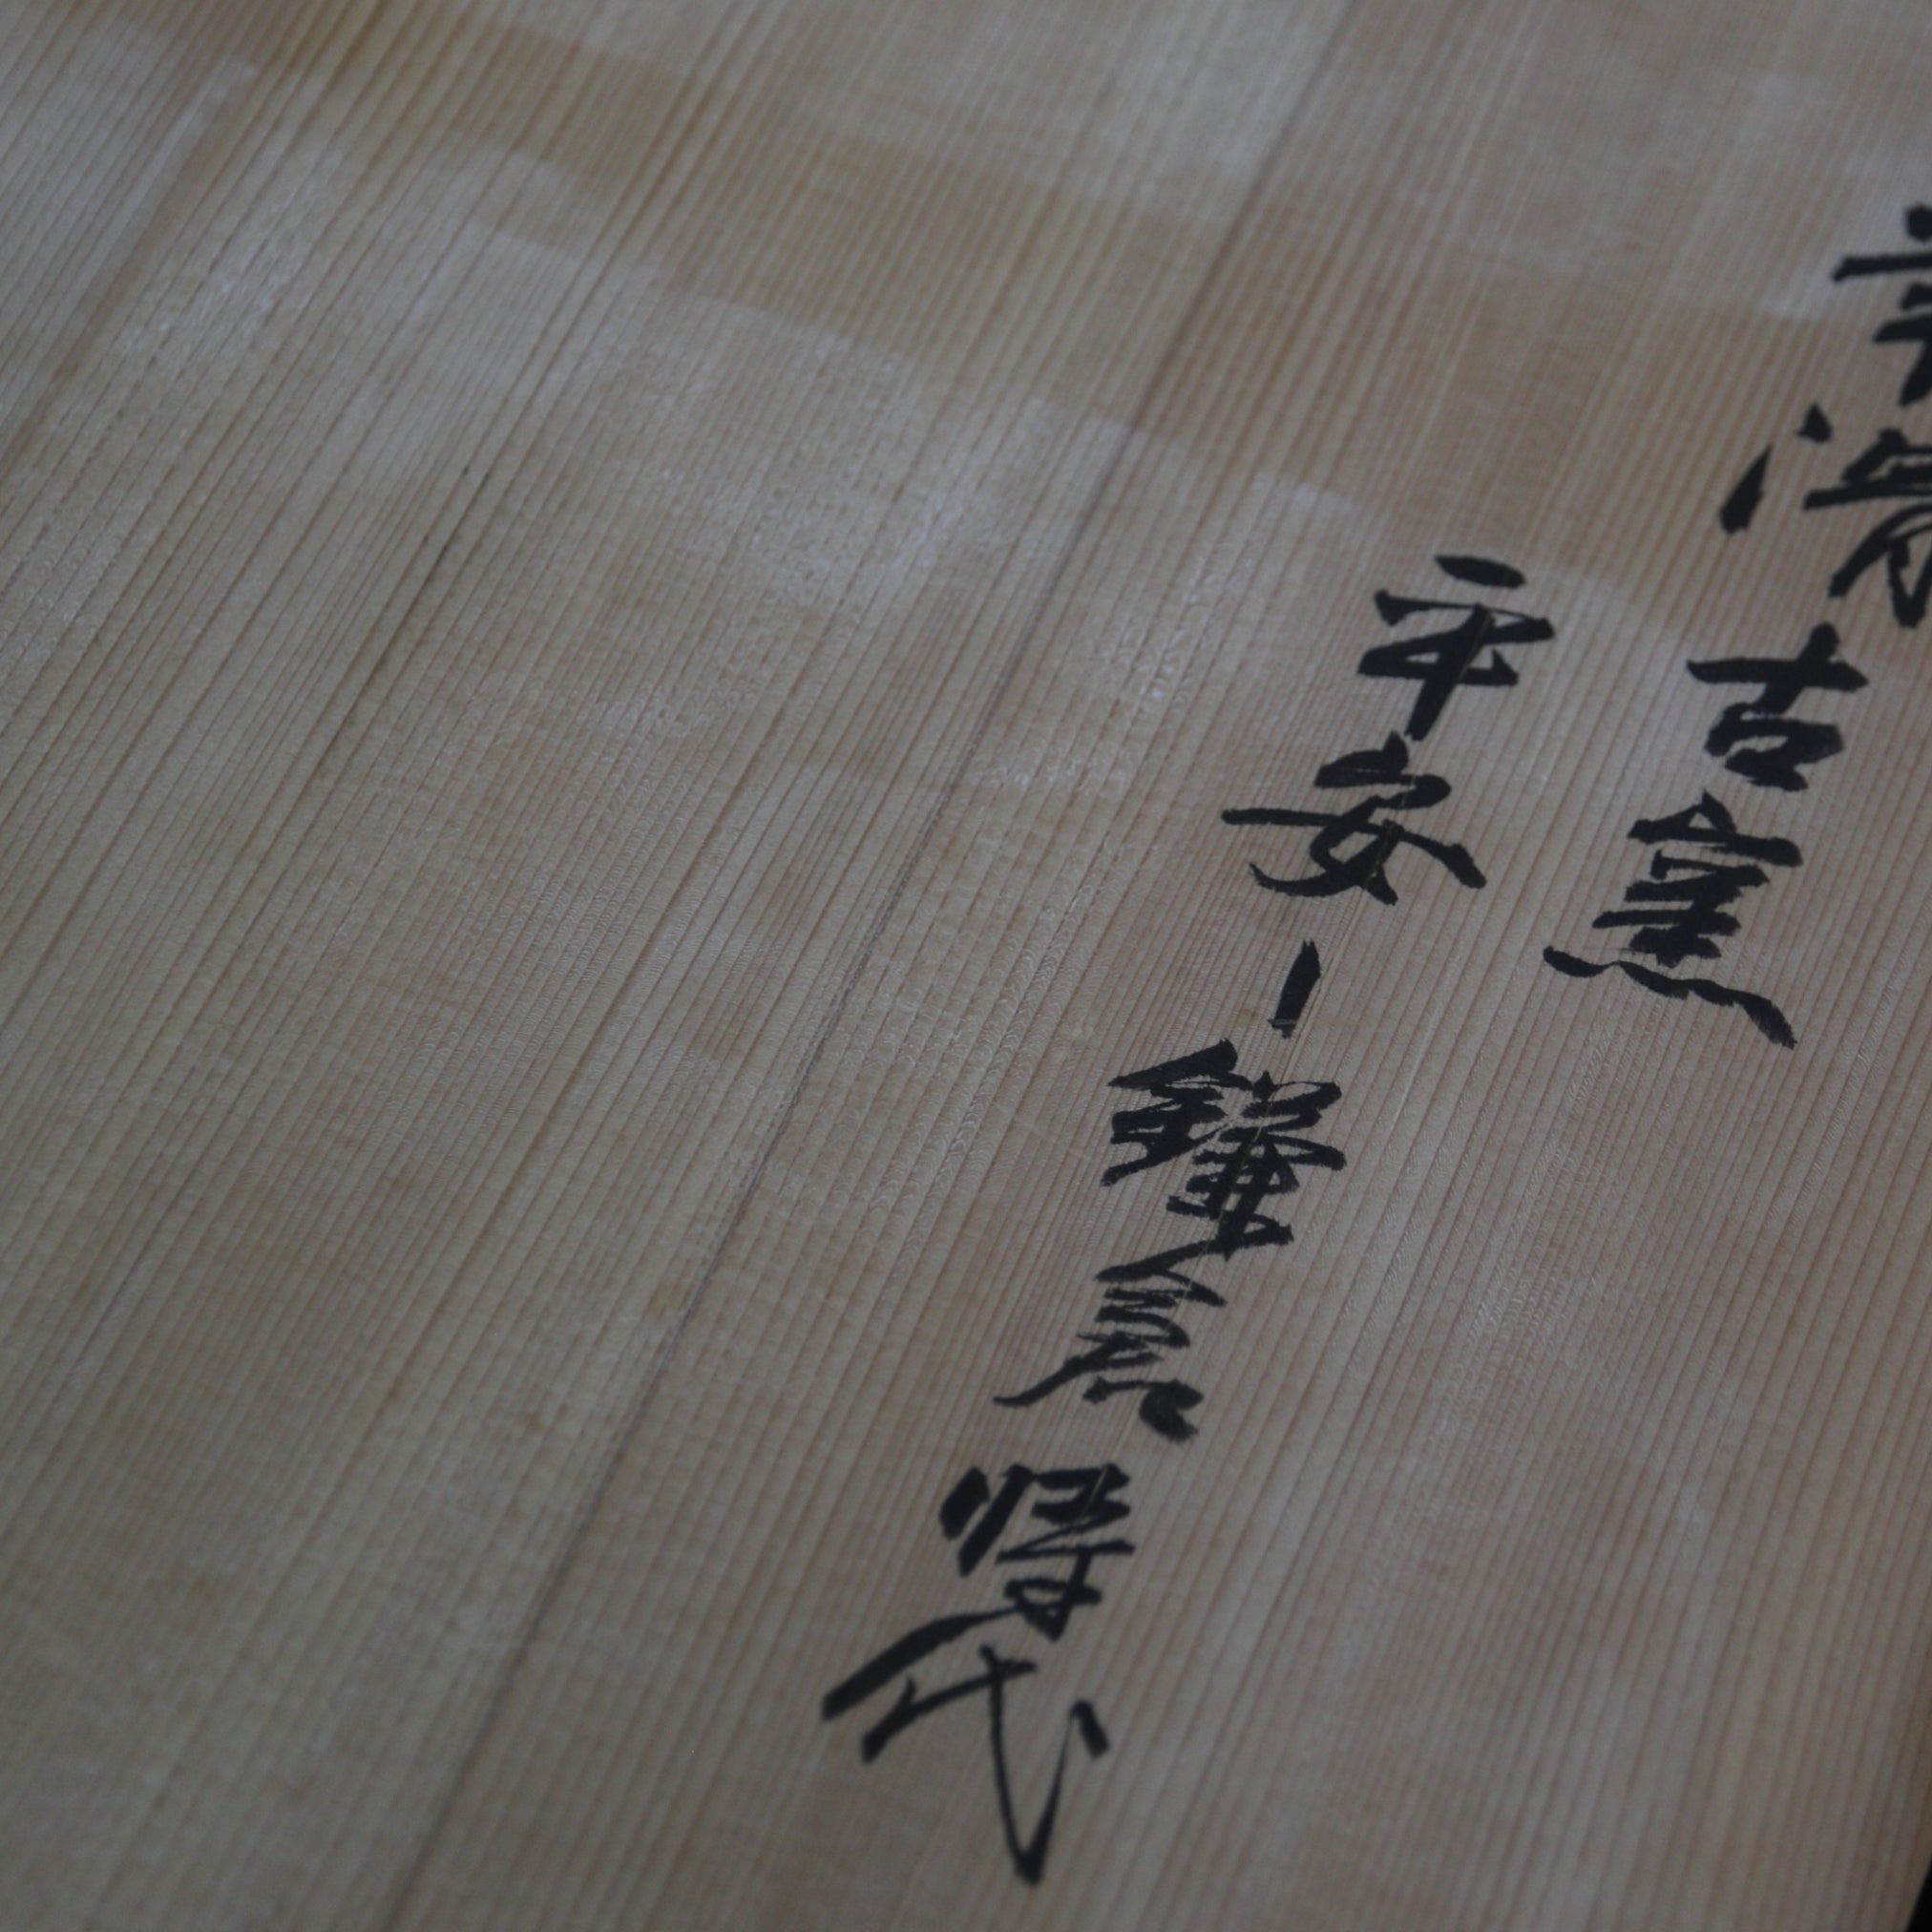 常滑古窯
平安ー鎌倉時代